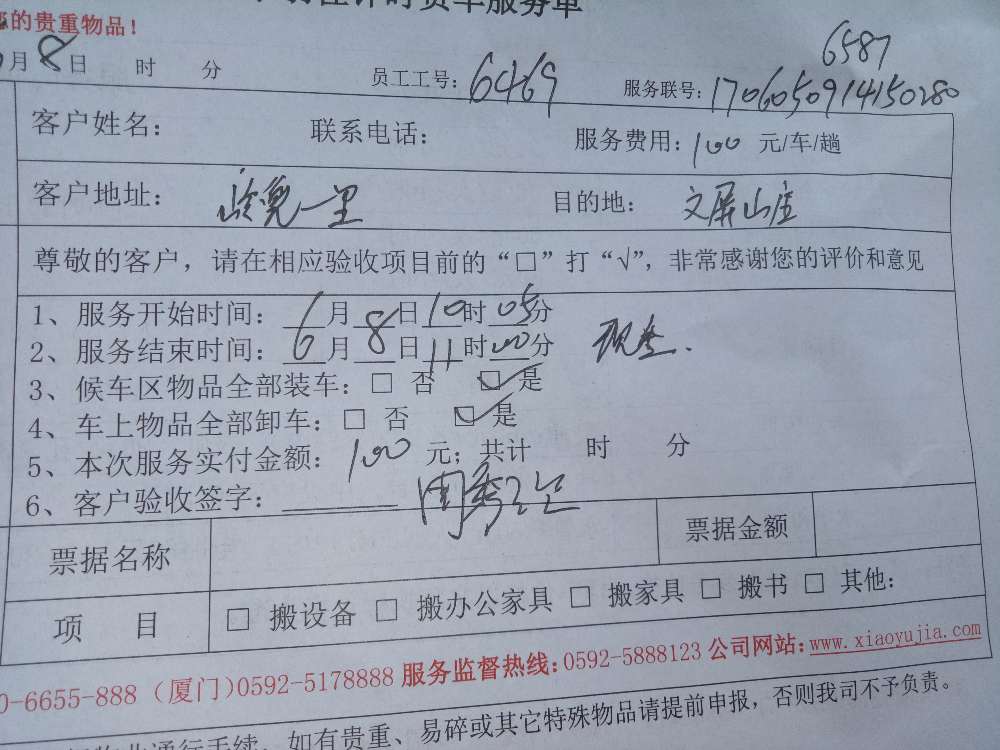 时货车服务单
的贵重物品！
6587
月8日 时 分 员工工号：6469 服务联号：1706050914150280
客户姓名： 联系电话： 服务费用：100 元/车/趟
客户地址： 一里 目的地：文屏山庄
尊敬的客户，请在相应验收项目前的“□”打“√”，非常感谢您的评价和意见
1、服务开始时间：6月8日10时05分
2、服务结束时间：6月8日11时00分
3、候车区物品全部装车：□ 否 ☑ 是
4、车上物品全部卸车：□ 否 ☑ 是
5、本次服务实付金额：100 元；共计 时 分
6、客户验收签字：
票据名称 票据金额
项 目 □ 搬设备 □ 搬办公家具 □ 搬家具 □ 搬书 □ 其他：
0-6655-888（厦门）0592-5178888 服务监督热线：0592-5888123 公司网站：www.xiaoyujia.com
物业通行手续，如有贵重、易碎或其它特殊物品请提前申报，否则我司不予负责。